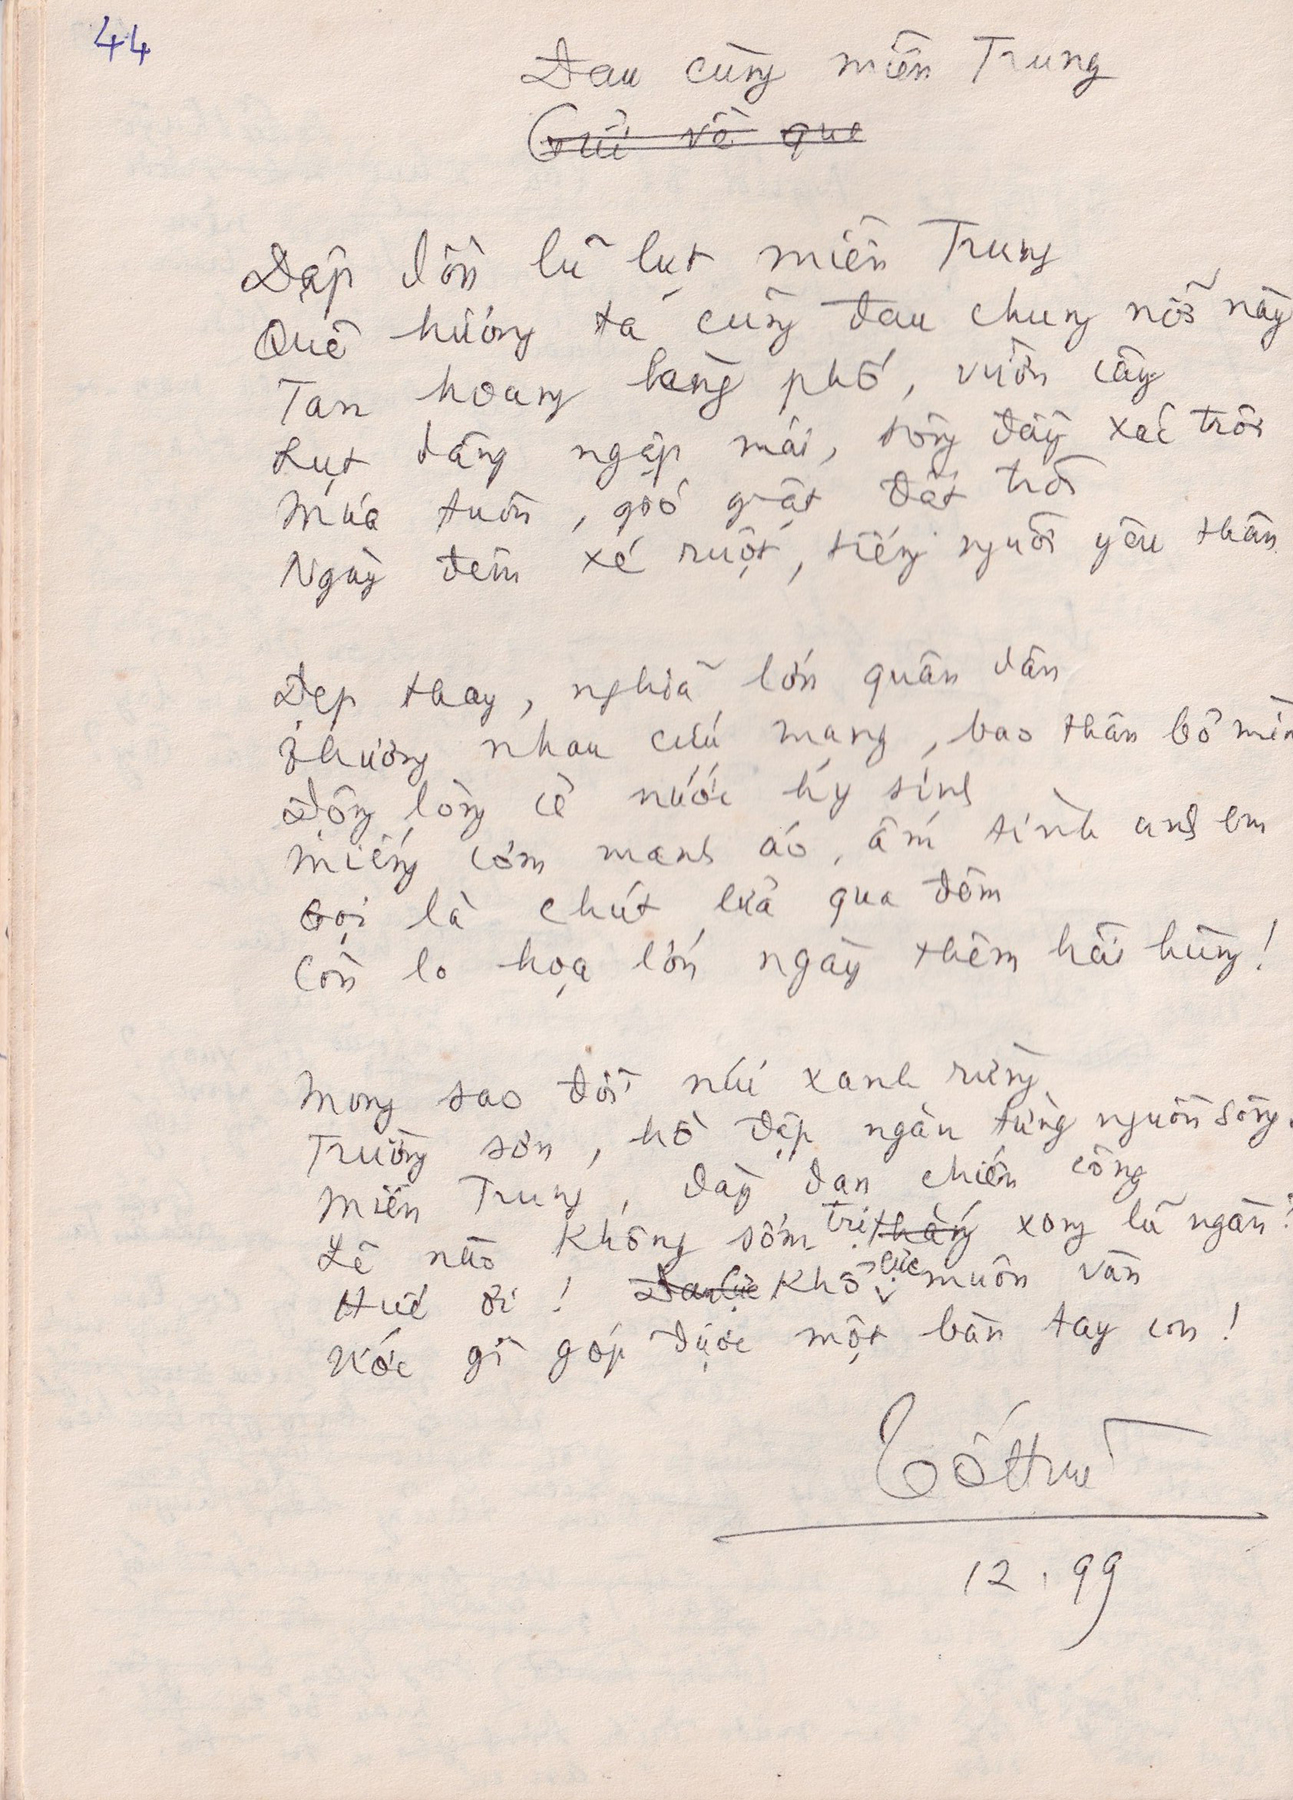 44
Đau cùng miền Trung
Gửi về quê
Dập dồn lũ lụt miền Trung
Quê hương ta cùng đau chung nỗi này
Tan hoang làng phố, vườn cây
Lụt dâng ngập mái, sông đầy xác trôi
Mưa tuôn, gió giật đất trời
Ngày đêm xé ruột, tiếng người yêu thân
Đẹp thay, nghĩa lớn quân dân
Thương nhau cứu mạng, bao thân bỏ mìn
Động lòng cả nước hy sinh
Miếng cơm manh áo, ấm tình anh em
Gọi là chút lửa qua đêm
Còn lo họa lớn ngày thêm hãi hùng!
Mong sao đồi núi xanh rừng
Trường sơn, hồ đập ngăn từng nguồn sông.
Miền Trung, dày dạn chiến công
Lẽ nào không sớm trị thắng xong lũ ngàn?
Huế ơi! Đau cực Khổ cực muôn vàn
Ước gì góp được một bàn tay con!
Tố Hữu
12.99